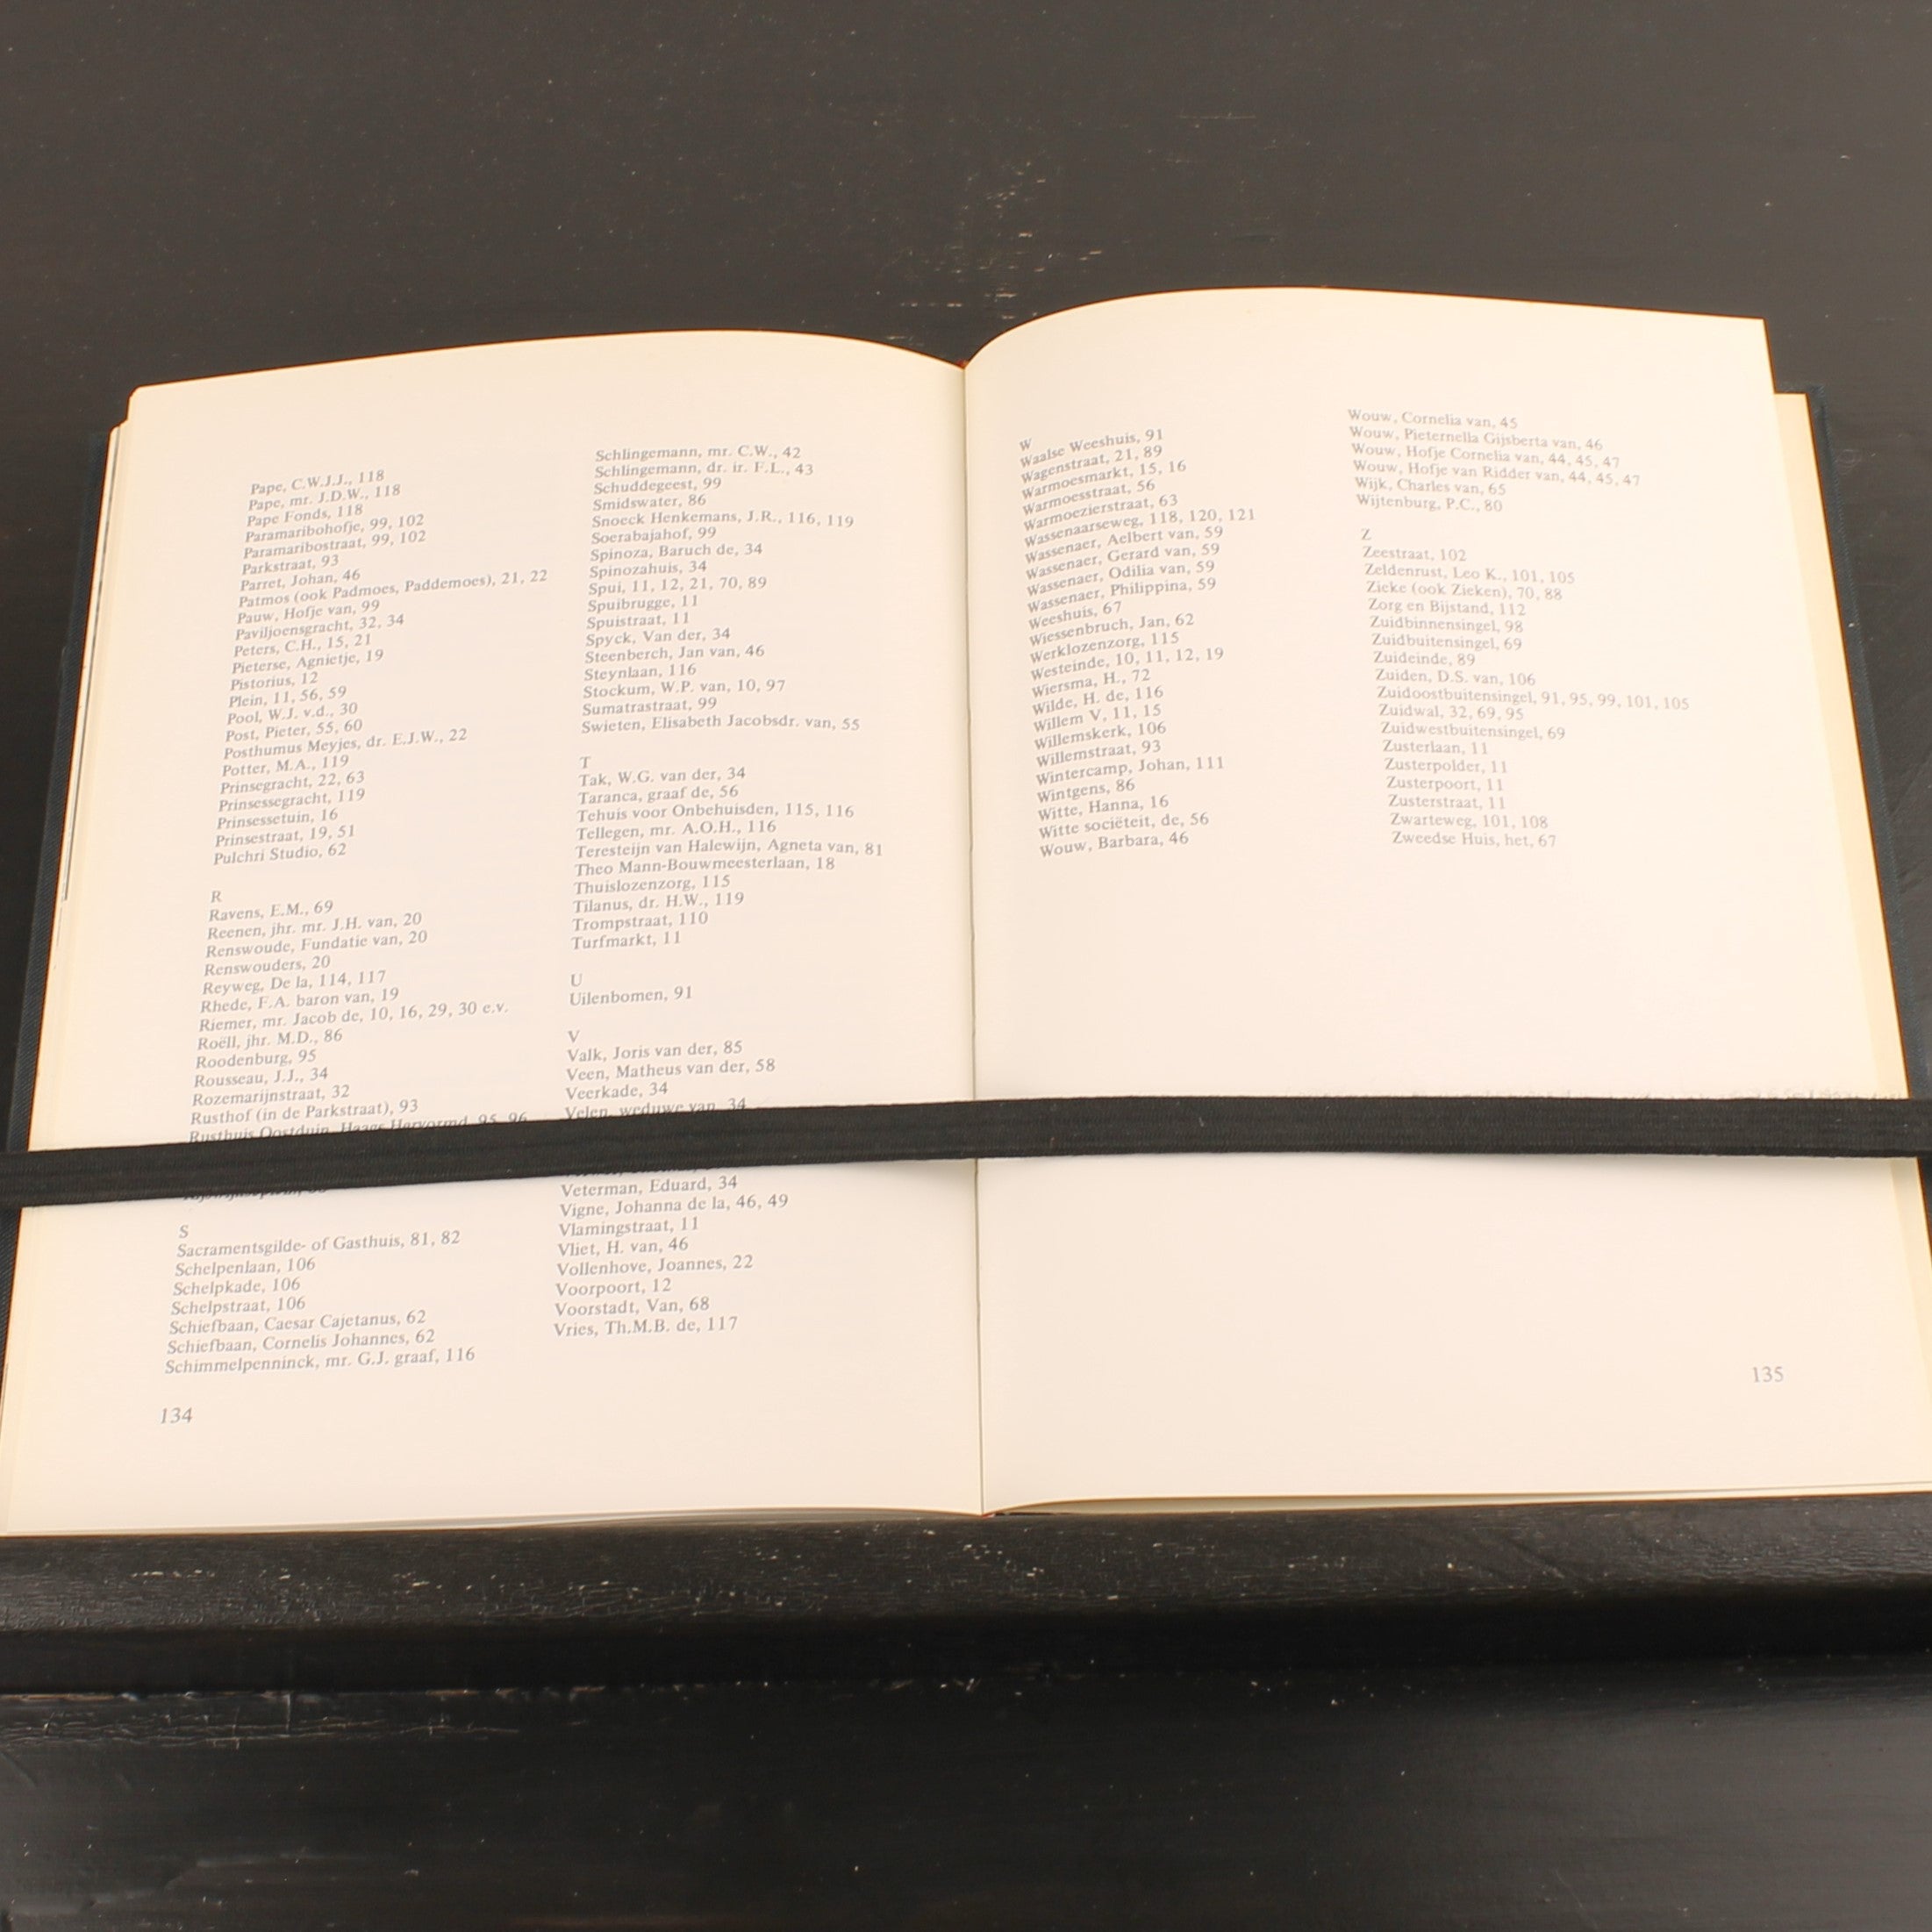 Pape, C.W.J.J., 118
Pape, mr. J.D.W., 118
Pape Fonds, 118
Paramaribohofje, 99, 102
Paramaribostraat, 99, 102
Parkstraat, 93
Parret, Johan, 46
Patmos (ook Padmoes, Paddemoes), 21, 22
Pauw, Hofje van, 99
Paviljoensgracht, 32, 34
Peters, C.H., 15, 21
Pieterse, Agnietje, 19
Pistorius, 12
Plein, 11, 56, 59
Pool, W.J. v.d., 30
Post, Pieter, 55, 60
Posthumus Meyjes, dr. E.J.W., 22
Potter, M.A., 119
Prinsegracht, 22, 63
Prinsessegracht, 119
Prinsessetuin, 16
Prinsestraat, 19, 51
Pulchri Studio, 62
R
Ravens, E.M., 69
Reenen, jhr. mr. J.H. van, 20
Renswoude, Fundatie van, 20
Renswouders, 20
Reyweg, De la, 114, 117
Rhede, F.A. baron van, 19
Riemer, mr. Jacob de, 10, 16, 29, 30 e.v.
Roëll, jhr. M.D., 86
Roodenburg, 95
Rousseau, J.J., 34
Rozemarijnstraat, 32
Rusthof (in de Parkstraat), 93
Rusthuis Oostduin, Haags Hervormd, 95, 96
S
Sacramentsgilde- of Gasthuis, 81, 82
Schelpenlaan, 106
Schelpkade, 106
Schelpstraat, 106
Schiefbaan, Caesar Cajetanus, 62
Schiefbaan, Cornelis Johannes, 62
Schimmelpenninck, mr. G.J. graaf, 116
134
Schlingemann, mr. C.W., 42
Schlingemann, dr. ir. F.L., 43
Schuddegeest, 99
Smidswater, 86
Snoeck Henkemans, J.R., 116, 119
Soerabajahof, 99
Spinoza, Baruch de, 34
Spinozahuis, 34
Spui, 11, 12, 21, 70, 89
Spuibrugge, 11
Spuistraat, 11
Spyck, Van der, 34
Steenberch, Jan van, 46
Steynlaan, 116
Stockum, W.P. van, 10, 97
Sumatrastraat, 99
Swieten, Elisabeth Jacobsdr. van, 55
T
Tak, W.G. van der, 34
Taranca, graaf de, 56
Tehuis voor Onbehuisden, 115, 116
Tellegen, mr. A.O.H., 116
Teresteijn van Halewijn, Agneta van, 81
Theo Mann-Bouwmeesterlaan, 18
Thuislozenzorg, 115
Tilanus, dr. H.W., 119
Trompstraat, 110
Turfmarkt, 11
U
Uilenbomen, 91
V
Valk, Joris van der, 85
Veen, Matheus van der, 58
Veerkade, 34
Velen, weduwe van, 34
Veterman, Eduard, 34
Vigne, Johanna de la, 46, 49
Vlamingstraat, 11
Vliet, H. van, 46
Vollenhove, Joannes, 22
Voorpoort, 12
Voorstadt, Van, 68
Vries, Th.M.B. de, 117
W
Waalse Weeshuis, 91
Wagenstraat, 21, 89
Warmoesmarkt, 15, 16
Warmoesstraat, 56
Warmoezierstraat, 63
Wassenaarseweg, 118, 120, 121
Wassenaer, Aelbert van, 59
Wassenaer, Gerard van, 59
Wassenaer, Odilia van, 59
Wassenaer, Philippina, 59
Weeshuis, 67
Wiessenbruch, Jan, 62
Werklozenzorg, 115
Westeinde, 10, 11, 12, 19
Wiersma, H., 72
Wilde, H. de, 116
Willem V, 11, 15
Willemskerk, 106
Willemstraat, 93
Wintercamp, Johan, 111
Wintgens, 86
Witte, Hanna, 16
Witte sociëteit, de, 56
Wouw, Barbara, 46
Wouw, Cornelia van, 45
Wouw, Pieternella Gijsberta van, 46
Wouw, Hofje Cornelia van, 44, 45, 47
Wouw, Hofje van Ridder van, 44, 45, 47
Wijk, Charles van, 65
Wijtenburg, P.C., 80
Z
Zeestraat, 102
Zeldenrust, Leo K., 101, 105
Zieke (ook Zieken), 70, 88
Zorg en Bijstand, 112
Zuidbinnensingel, 98
Zuidbuitensingel, 69
Zuideinde, 89
Zuiden, D.S. van, 106
Zuidoostbuitensingel, 91, 95, 99, 101, 105
Zuidwal, 32, 69, 95
Zuidwestbuitensingel, 69
Zusterlaan, 11
Zusterpolder, 11
Zusterpoort, 11
Zusterstraat, 11
Zwarteweg, 101, 108
Zweedse Huis, het, 67
135